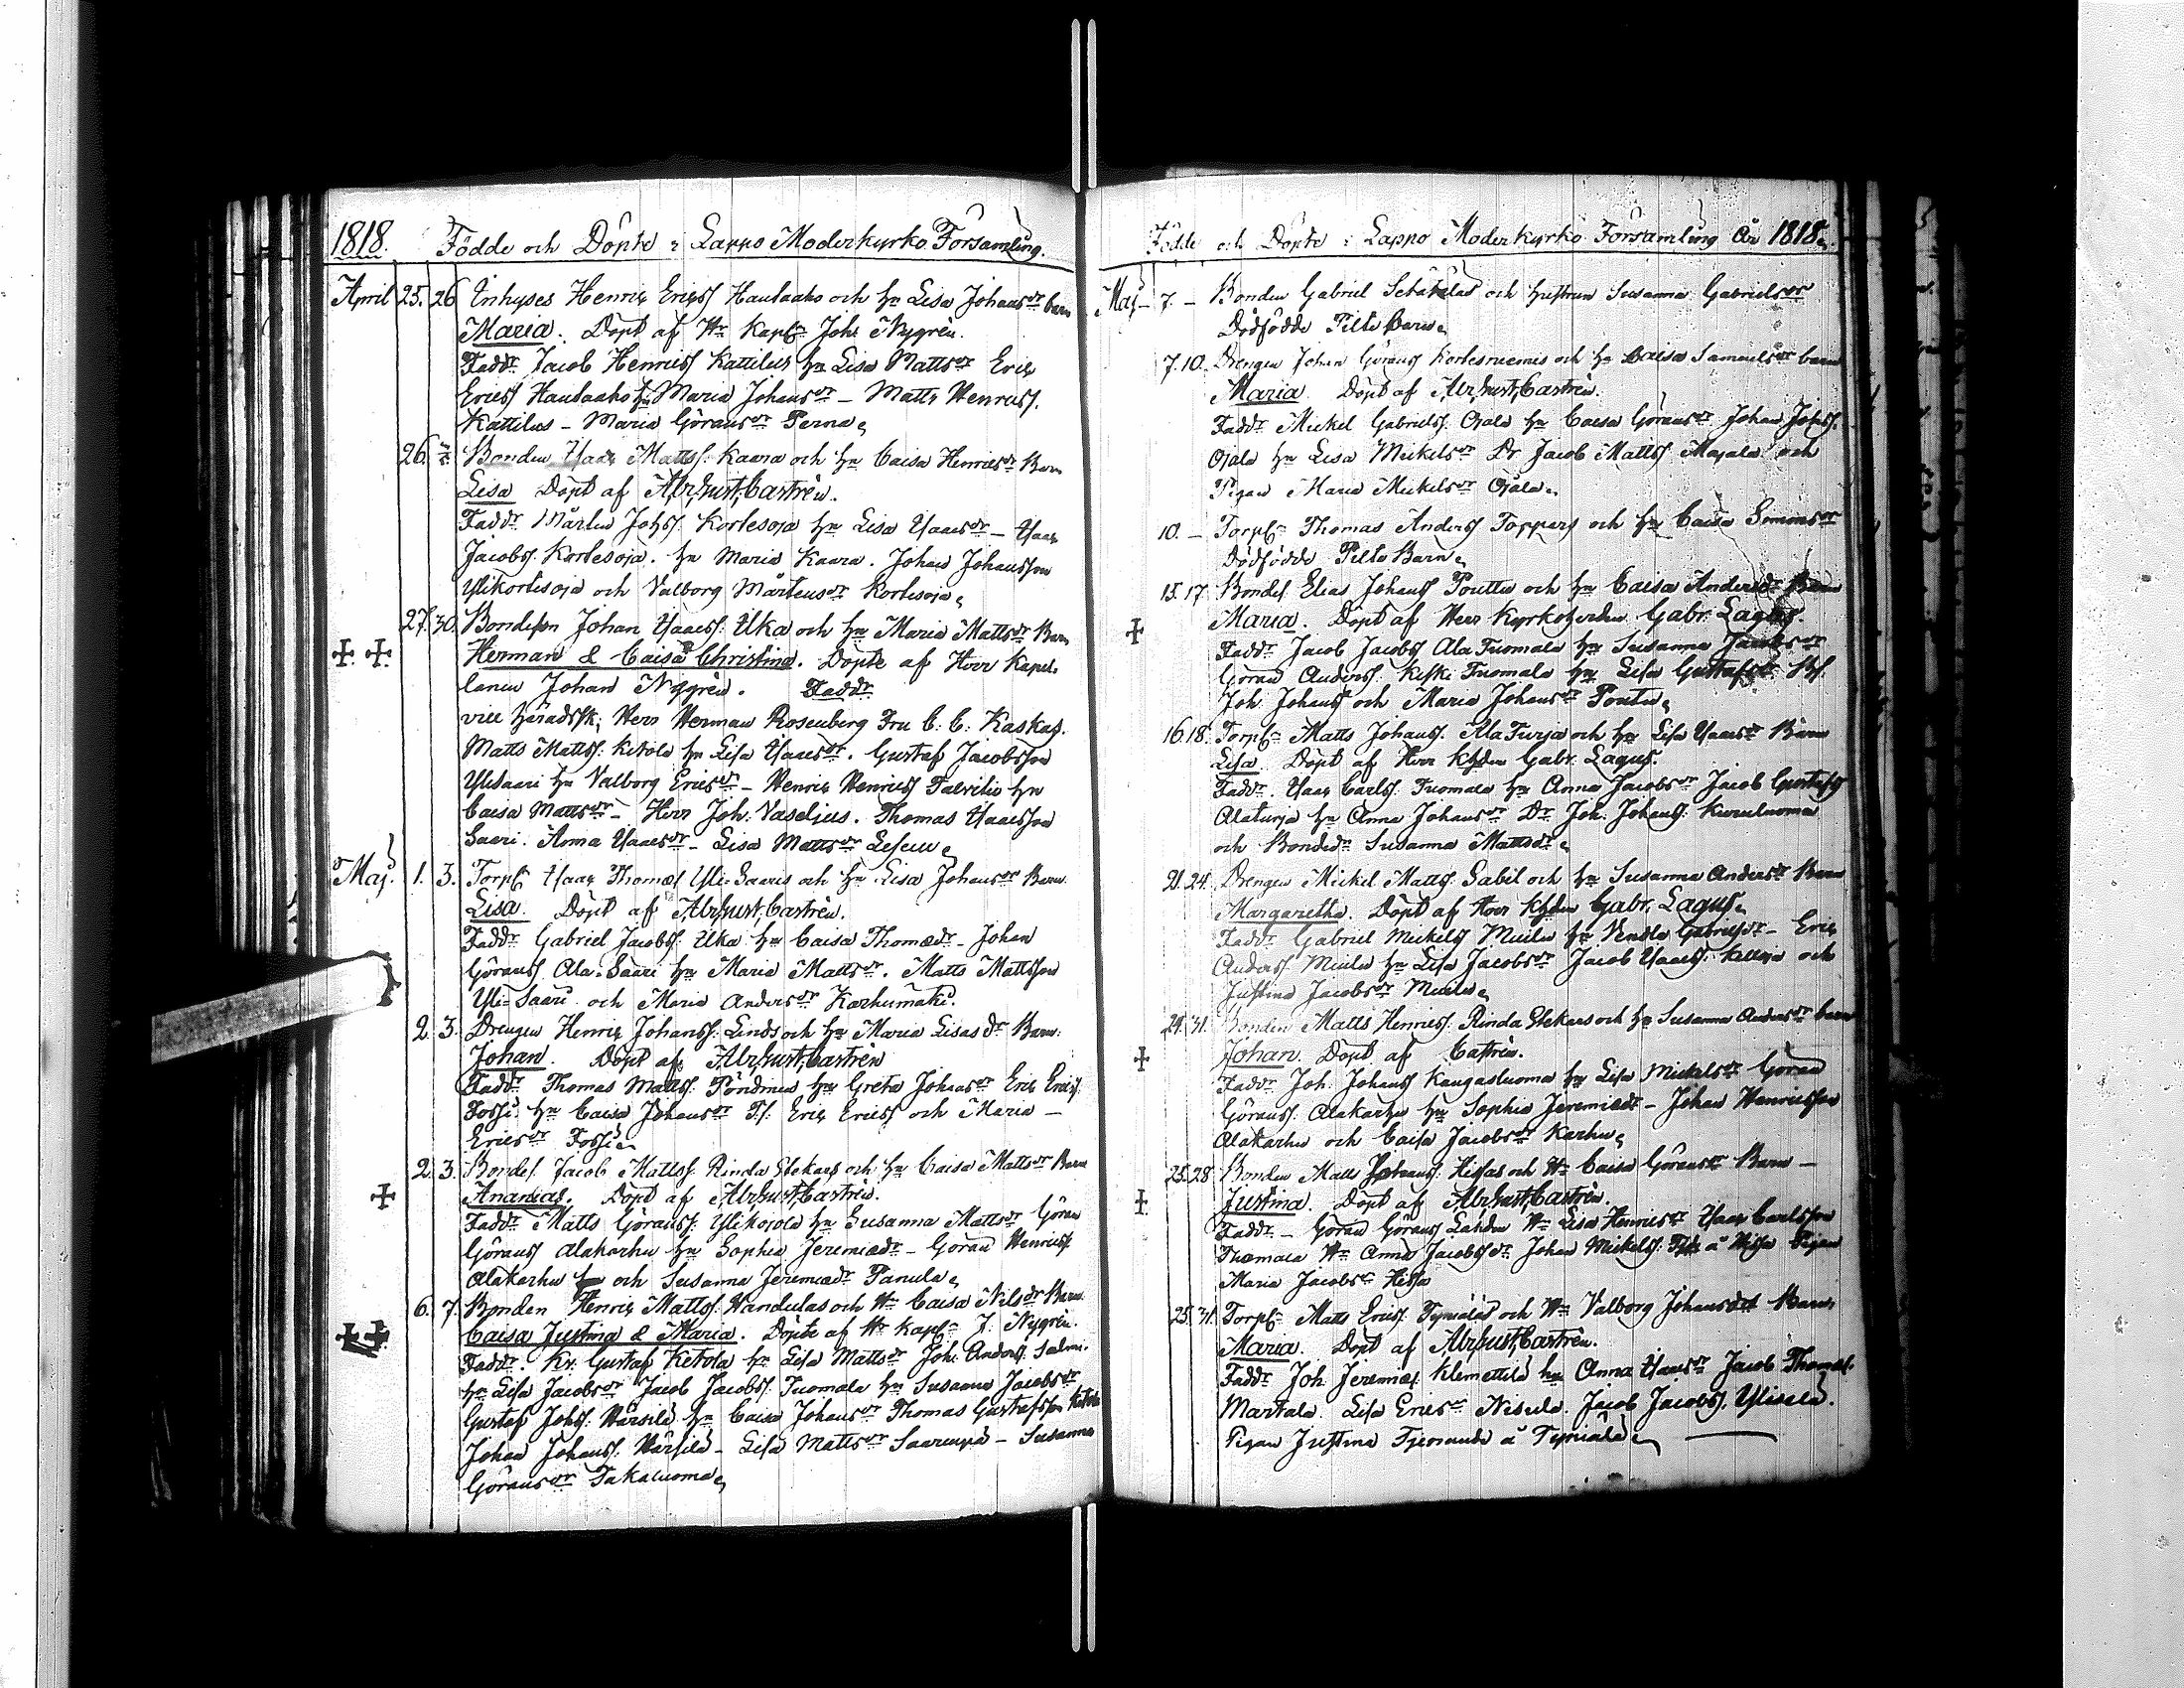 1818. Födde och Döpte i Lappo Moderkyrko Församling.
April 25. 26 Inhyses Henric Ericss Hautaaho och hu Lisa Johansdr barn
Maria. Döpt af Hr Kapln Joh: Nygrén.
Faddr Jacob Henricss Kattilus hu Lisa Mattsdr Eric
Ericss Hautaaho hu Maria Johansdr – Matts Henricss.
Kattilus – Maria Göransdr Perna
26. Bonden Isaac Mattss. Kaara och hu Caisa Henricsdr Barn
Lisa Döpt af Adjunct. Castrén.
Faddr Mårten Johss. Kortesoja hu Lisa Isaacsdr – Isaac
Jacobss. Kortesoja. hu Maria Kaara. Johan Johansson
Ylikortesoja och Valborg Mårtensdr Kortesoja
27. 30. Bondeson Johan Isaacss. Uka och hu Maria Mattsdr Barn
Herman & Caisa Christina. Döpte af Herr Kapel-
lanen Johan Nygrén. Faddr
vice häradsh: Herr Herman Rosenberg Fru C. C. Kaskas.
Matts Mattss. Ketola hu Lisa Isaacsdr. Gustaf Jacobsson
Ylisaari hu Valborg Ericsdr – Henric Henricss hu
Caisa Mattsdr – Herr Joh: Vaselius. Thomas Isaacsson
Saari. Anna Isaacsdr – Lisa Mattsdr
Maj. 1. 3. Torpn Isaac Thomæs Yli-Saaris och hu Lisa Johansdr Barn
Lisa. Döpt af Adjunct. Castrén.
Faddr Gabriel Jacobss. Uka hu Caisa Thomædr – Johan
Göranss. Ala-Saari hu Maria Mattsdr. Matts Mattsson
Yli-Saari och Maria Andersdr Karhumäki.
2. 3. Drengen Henric Johanss. Linds och hu Maria Lisasdr Barn.
Johan. Döpt af Adjunct. Castrén
Faddr Thomas Mattss. Pöndinen hu Greta Johansdr Eric Ericss
Fossi. hu Caisa Johansdr Eric Ericss och Maria –
Ericsdr Fossi
2. 3. Bondes. Jacob Mattss. Rinda Stekars och hu Caisa Mattsdr Barn
Ananias. Döpt af Adjunct. Castrén.
Faddr Matts Göranss. Ylikojola hu Susanna Mattsdr Göran
Göranss Alakarhu hu Sophia Jeremiædr – Göran Henricss
Alakarhu och Susanna Jeremiædr Panula
6. 7. Bonden Henric Mattss. Handulas och Hu Caisa Nilsdr Barn
Caisa Justina & Maria. Döpte af Hr Kapln J. Nygrén.
Faddr. Kr. Gustaf Ketola hu Lisa Mattsdr Joh: Anderss. Salmi.
hu Lisa Jacobsdr Jacob Jacobss. Tuomala hu Susanna Jacobsdr
Gustaf Johss. Härsilä hu Caisa Johansdr Thomas Gustafsson Ketola
Johan Johanss. Härsilä – Lisa Mattsdr Saarenpä – Susanna
Göransdr Takaluoma
Födde och Döpte i Lappo Moderkyrko Församling År 1818.
Maj. 7. – Bonden Gabriel och hustrun Susanna Gabrielsdr
Dödfödde Pilte Barn
7. 10. Drengen Johan Göranss Kortesniemis och hu Caisa Samuelsdr barn
Maria. Döpt af Adjunct. Castrén.
Faddr Mickel Gabrielss. Ojala hu Caisa Göransdr Johan Johss.
Ojala hu Lisa Mickelsdr Dr Jacob Mattss Majala och
Pigan Maria Mickelsdr Ojala
10. – Torpn Thomas Anderss Toppars och hu Caisa Simonsdr
Dödfödde Pilte Barn
15. 17 Bondes. Elias Johanss Pouttu och hu Caisa Andersdr Barn
Maria. Döpt af Herr Kyrkoherden Gabr. Lagus.
Faddr Jacob Jacobss Ala Tuomala hu Susanna Jacobsdr
Göran Anderss. Keski Tuomala hu Lisa Gustafsdr Bs.
Joh. Johanss och Maria Johansdr Pouttu
16 18. Torpn Matts Johanss. Ala Turja och hu Lisa Isaacsdr Barn
Lisa. Döpt af Herr Khden Gabr. Lagus.
Faddr. Isaac Carlss. Tuomala hu Anna Jacobsdr Jacob Gustafss
Alaturja hu Anna Johansdr Dr Joh. Johanss.
och Bondedr Susanna Mattsdr
21. 24. Drengen Mickel Mattss. Sabil och hu Susanna Andersdr Barn
Margaretha. Döpt af Herr Khden Gabr. Lagus
Faddr Gabriel Mickelss hu Vendla Gabrielsdr – Eric
Anderss. hu Lisa Jacobsdr Jacob Isaacss. och
Justina Jacobsdr
24. 31. Bonden Matts Henricss. Rinda Stekars och hu Susanna Andersdr barn
Johan. Döpt af Castrén.
Faddr Joh. Johanss Kangasluoma hu Lisa Mickelsdr Göran
Göranss. Alakarhu hu Sophia Jeremiædr – Johan Henricsson
Alakarhu och Caisa Jacobsdr Karhu
25. 28. Bonden Matts Johanss. Hissas och Hu Caisa Göransdr Barn –
Justina. Döpt af Adjunct. Castrén.
Faddr – Göran Göranss Lahden Hu Lisa Henricsdr Isaac Carlsson
Thomala Hu Anna Jacobsdr Johan Mickelss. å Hissa Pigan
Maria Jacobsdr Hissa
25. 31. Torpn Matts Ericss. Tyniäläs och Hu Valborg Johansdr Barn
Maria. Döpt af Adjunct. Castrén.
Faddr Joh. Jeremiæs Klemettilä hu Anna Isaacsdr Jacob Thomæs.
Martala. Lisa Ericsdr Nisula. Jacob Jacobss. Ylisala.
Pigan Justina å Tyniälä